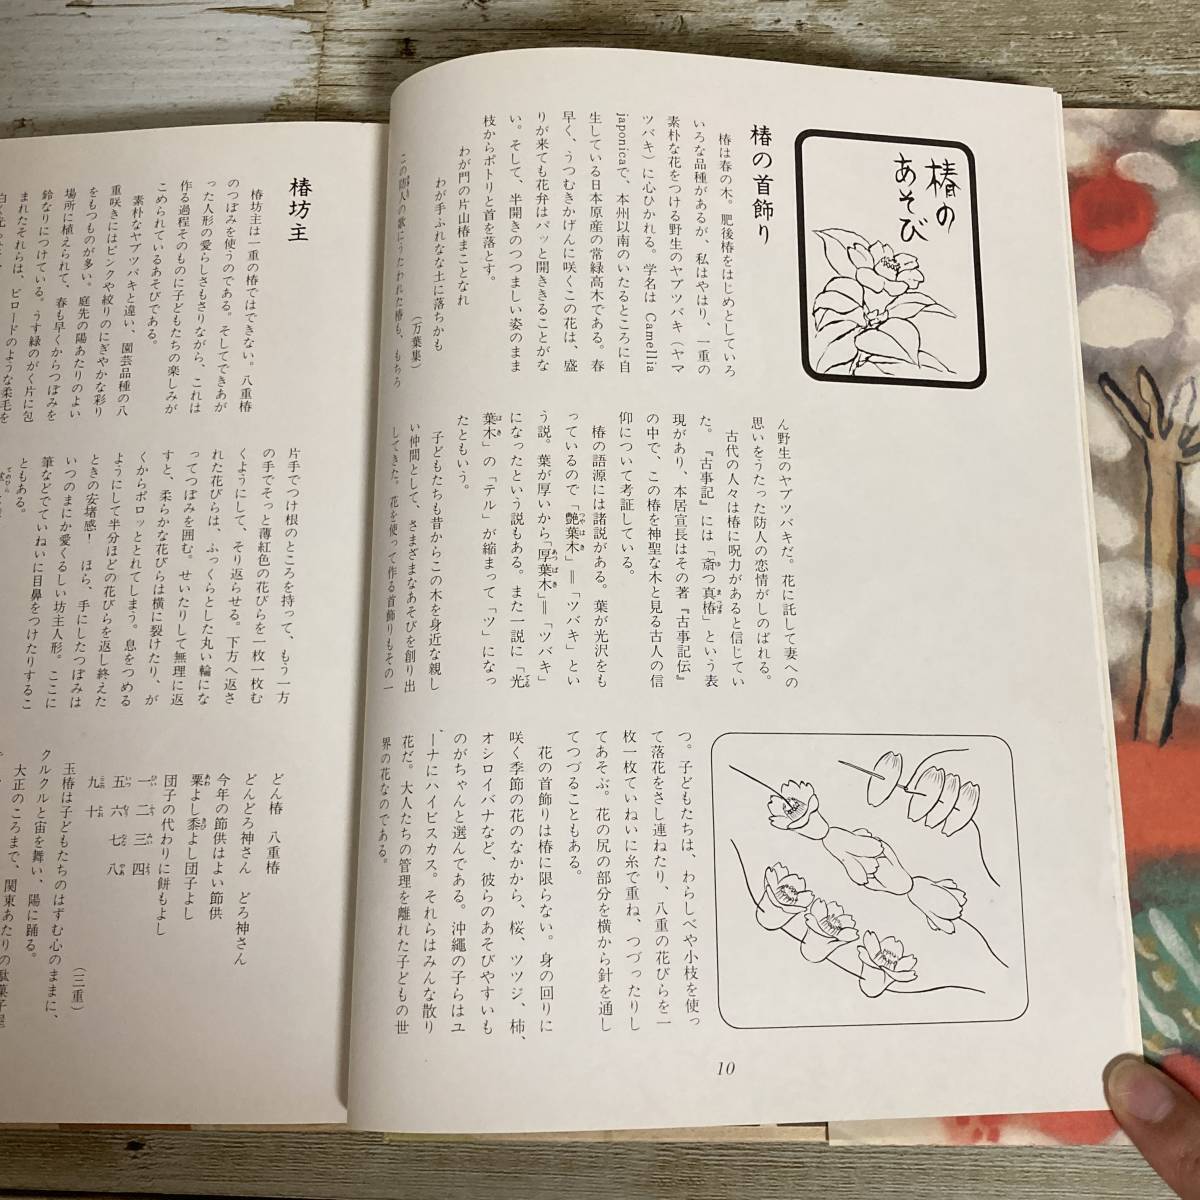 椿の
あそび
椿の首飾り
椿は春の木。肥後椿をはじめとしていろ
いろな品種があるが、私はやはり、一重の
素朴な花をつける野生のヤブツバキ（ヤマ
ツバキ）に心ひかれる。学名は Camellia
japonicaで、本州以南のいたるところに自
生している日本原産の常緑高木である。春
早く、うつむきかげんに咲くこの花は、盛
りが来ても花弁はパッと開ききることがな
い。そして、半開きのつつましい姿のまま
枝からポトリと首を落とす。
わが門の片山椿まことなれ
わが手ふれなな土に落ちかも
（万葉集）
この防人の歌にうたわれた椿も、もちろ
ん野生のヤブツバキだ。花に託して妻への
思いをうたった防人の恋情がしのばれる。
古代の人々は椿に呪力があると信じてい
た。『古事記』には「斎つ真椿」という表
現があり、本居宣長はその著『古事記伝』
の中で、この椿を神聖な木と見る古人の信
仰について考証している。
椿の語源には諸説がある。葉が光沢をも
っているので「艶葉木」＝「ツバキ」とい
う説。葉が厚いから「厚葉木」＝「ツバキ」
になったという説もある。また一説に「光
葉木」の「テル」が縮まって「ツ」になっ
たともいう。
子どもたちも昔からこの木を身近な親し
い仲間として、さまざまなあそびを創り出
してきた。花を使って作る首飾りもその一
つ。子どもたちは、わらしべや小枝を使っ
て落花をさし連ねたり、八重の花びらを一
枚一枚ていねいに糸で重ね、つづったりし
てあそぶ。花の尻の部分を横から針を通し
てつづることもある。
花の首飾りは椿に限らない。身の回りに
咲く季節の花のなかから、桜、ツツジ、柿、
オシロイバナなど、彼らのあそびやすいも
のがちゃんと選んである。沖縄の子らはユ
ーナにハイビスカス。それらはみんな散り
花だ。大人たちの管理を離れた子どもの世
界の花なのである。
10
椿坊主
椿坊主は一重の椿ではできない。八重椿
のつぼみを使うのである。そしてできあが
った人形の愛らしさもさりながら、これは
作る過程そのものに子どもたちの楽しみが
こめられているあそびである。
素朴なヤブツバキと違い、園芸品種の八
重咲きにはピンクや絞りのにぎやかな彩り
をもつものが多い。庭先の陽あたりのよい
場所に植えられて、春も早くからつぼみを
鈴なりにつけている。うす緑のがく片に包
まれたそれらは、ビロードのような柔毛を
片手でつけ根のところを持って、もう一方
の手でそっと薄紅色の花びらを一枚一枚む
くようにして、そり返らせる。下方へ返さ
れた花びらは、ふっくらとした丸い輪にな
ってつぼみを囲む。せいたりして無理に返
すと、柔らかな花びらは横に裂けたり、が
くからポロッととれてしまう。息をつめる
ようにして半分ほどの花びらを返し終えた
ときの安堵感！　ほら、手にしたつぼみは
いつのまにか愛くるしい坊主人形。ここに
筆などでていねいに目鼻をつけたりするこ
ともある。
どん椿　八重椿
どんどろ神さん　どろ神さん
今年の節供はよい節供
粟よし黍よし団子よし
団子の代わりに餅もよし
一　二　三　四
五　六　七　八
九　十
（三重）
玉椿は子どもたちのはずむ心のままに、
クルクルと宙を舞い、陽に踊る。
大正のころまで、関東あたりの駄菓子屋